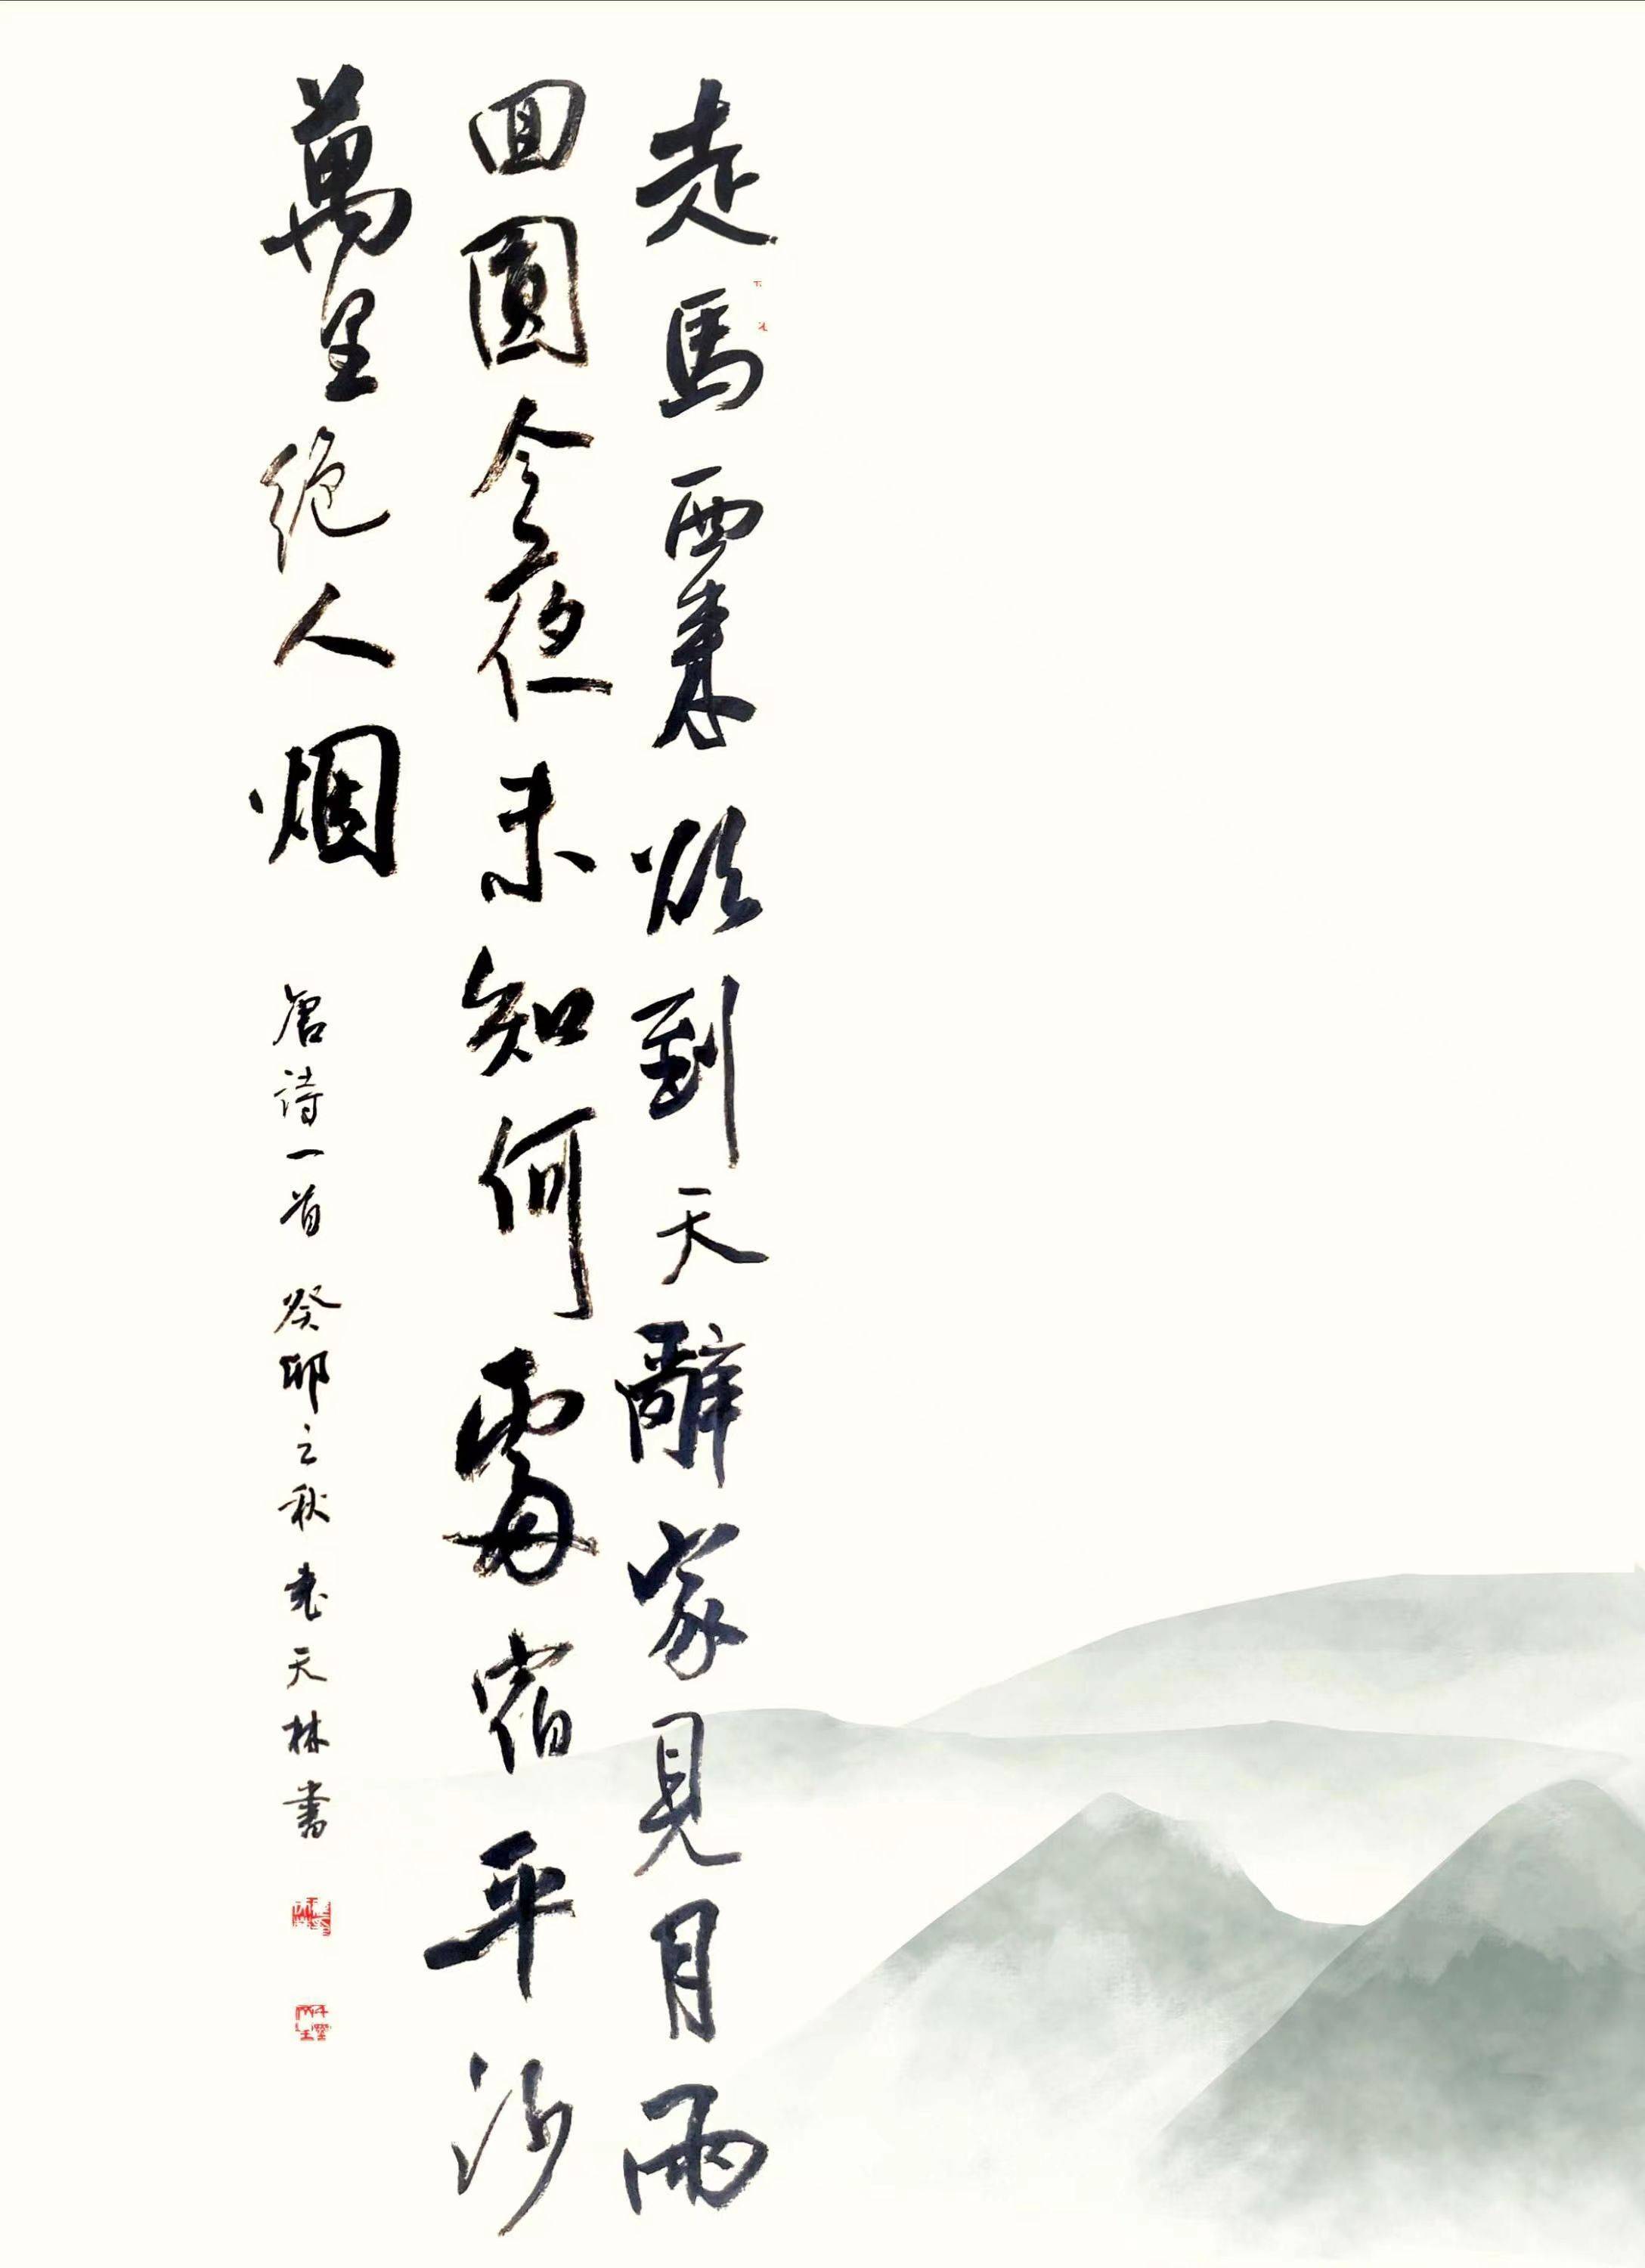 走馬西來欲到天辭家見月兩
回圓今夜未知何處宿平沙
萬里絶人烟
唐詩一首 癸卯之秋 天林書